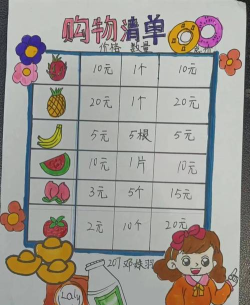 购物清单
价格 数量
10元 1个 10元
20元 1个 20元
5元 5根 5元
10元 1片 10元
3元 5个 15元
2元 10个 20元